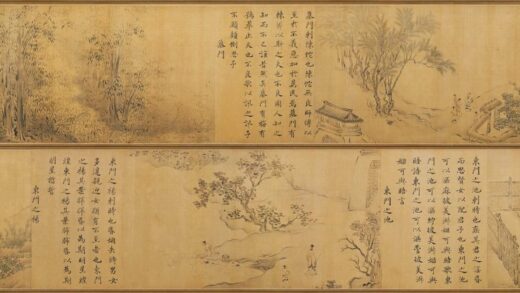 墓門刺陳佗也陳佗無良師傅以
至於不義惡加於萬民焉墓門有
棘斧以斯之夫也不良國人知之
知而不已誰昔然矣墓門有梅有
鴞萃止夫也不良歌以訊之訊予
不顧顛倒思予
墓門
東門之池刺時也疾其君之淫昏
而思賢女以配君子也東門之池
可以漚麻彼美淑姬可與晤歌東
門之池可以漚紵彼美淑姬可與
晤語東門之池可以漚菅彼美淑
姬可與晤言
東門之池
東門之楊刺時也昏姻失時男女
多違親迎女猶有不至者也東門
之楊其葉牂牂昏以為期明星煌
煌東門之楊其葉肺肺昏以為期
明星晢晢
東門之楊